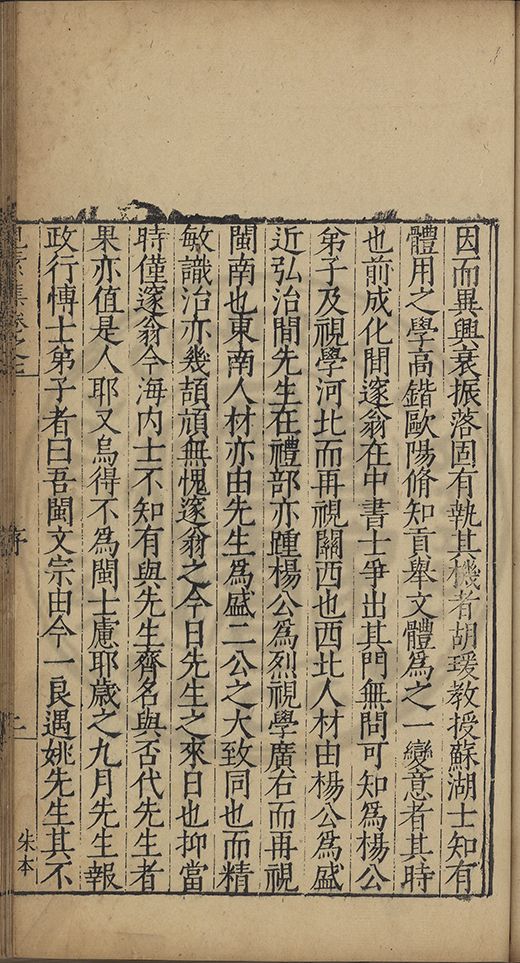 因而異興衰振落固有執其機者胡瑗教授蘇湖士知有
體用之學高錯歐陽脩知貢舉文體爲之一變意者其時
也前成化間邃翁在中書士爭出其門無問可知爲楊公
弟子及視學河北而再視關西也西北人材由楊公爲盛
近弘治間先生在禮部亦踵楊公爲烈視學廣右而再視
閩南也東南人材亦由先生爲盛二公之大致同也而精
敏識治亦幾頡頏無愧邃翁之今日先生之來日也抑當
時僅邃翁今海內士不知有與先生齊名與否代先生者
果亦值是人耶又烏得不爲閩士慮耶歲之九月先生報
政行愽士弟子者曰吾閩文宗由今一良遇姚先生其不
見素集卷之六
序
上
朱本